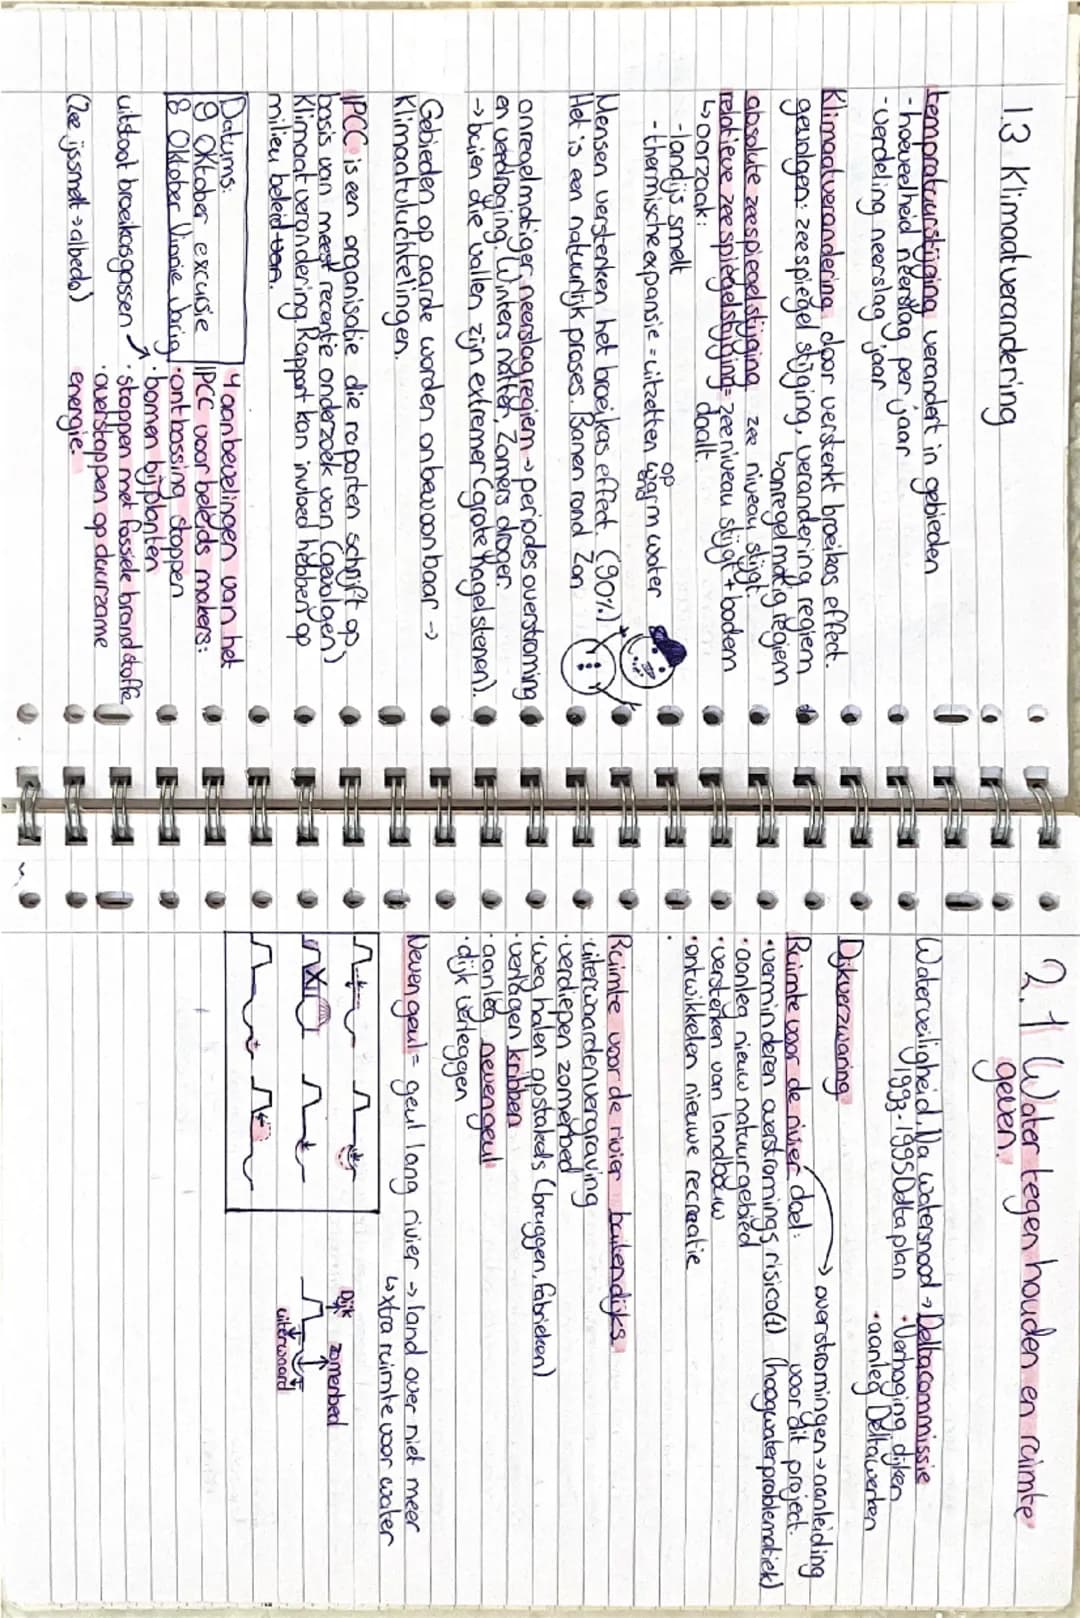 1.3 Klimaatverandering
tempratuurstijging verandert in gebieden
- hoeveelheid neerslag per jaar
- verdeling neerslag jaar
Klimaatverandering door versterkt broeikas effect.
gevolgen: zeespiegel stijging, verandering regiem
↳onregelmatig regiem
absolute zeespiegelstijging zee niveau stijgt
relatieve zeespiegelstijging= zeeniveau stijgt + bodem
daalt.
↳oorzaak:
- landijs smelt
- thermische expansie = uitzetten opwarm water
Mensen versterken het broeikas effect. (90%)
Het is een natuurlijk proses. Banen rond zon
onregelmatiger neerslagregiem → periodes overstroming
en verdroging. Winters natter, Zomers droger
→ buien die vallen zijn extremer (grote hagelstenen).
Gebieden op aarde worden onbewoonbaar →
Klimaatvluchtelingen.
IPCC is een organisatie die raporten schrijft op
basis van meest recente onderzoek van (gevolgen)
Klimaatverandering. Rapport kan invloed hebben op
milieu beleid van.
Datums:
9 Oktober excursie
8 Oktober Vinnie Jarig
4 aanbevelingen van het
IPCC voor beleids makers:
· ontbossing stoppen
· bomen bijplanten
uitstoot broeikasgassen
· stoppen met fossiele brandstoffe
· overstappen op duurzame
energie.
(Zee ijssmelt → albedo)
2.1 Water tegen houden en ruimte
geven.
Waterveiligheid, Na watersnood → Deltacommissie
1993-1995 Deltaplan
· Verhoging dijken
· aanleg Deltawerken
Dijkverzwaring
Ruimte voor de rivier doel:
→ overstromingen → aanleiding
voor dit project.
· verminderen overstromings risico(1) (hoogwaterproblematiek)
· aanleg nieuw natuurgebied
· versterken van landbouw
· ontwikkelen nieuwe recreatie
·
Ruimte voor de rivier buitendijks.
· uiterwaardenvergraving
· verdiepen zomerbed
· weg halen opstakels (bruggen, fabrieken)
· verlagen kribben
· aanleg nevengeul
· dijk verleggen
Nevengeul = geul lang rivier → land over niet meer
↳ xtra ruimte voor water
Dijk zomerbed
uiterwaard